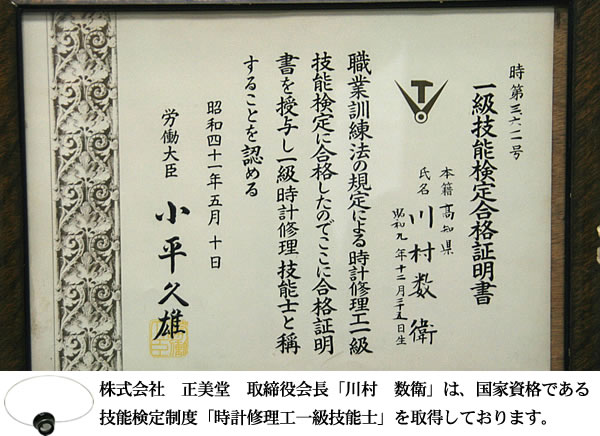 時第三六二号
一級技能検定合格証明書
本籍 高知県
氏名 川村数衛
昭和九年十二月二十五日生
職業訓練法の規定による時計修理工一級
技能検定に合格したのでここに合格証明
書を授与し一級時計修理技能士と称
することを認める
昭和四十一年五月十日
労働大臣 小平久雄
株式会社 正美堂 取締役会長「川村 数衛」は、国家資格である
技能検定制度「時計修理工一級技能士」を取得しております。